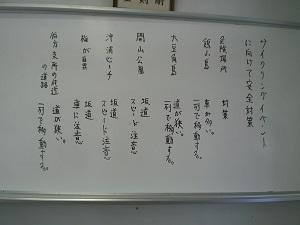 サイクリングイベント
に向けて安全対策
危険場所 対策
飯山島 車が多い。
一列で移動する。
大豆有島 道が狭い。
一列で移動する。
開山公園 坂道
スピード注意
沖浦ビーチ 坂道
スピード注意
梅が島 坂道
車に注意
伯方支所の付近
の道路 道が狭い。
一列で移動する。